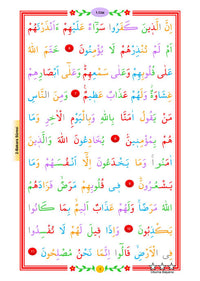 1.Cüz
إِنَّ الَّذِينَ كَفَرُوا سَوَٓاءٌ عَلَيْهِمْ ءَاَنْذَرْتَهُمْ
أَمْ لَمْ تُنْذِرْهُمْ لَا يُؤْمِنُونَ خَتَمَ اللّٰهُ
عَلٰى قُلُوبِهِمْ وَعَلٰى سَمْعِهِمْ وَعَلٰٓى أَبْصَارِهِمْ
غِشَاوَةٌ وَلَهُمْ عَذَابٌ عَظِيمٌ وَمِنَ النَّاسِ
مَنْ يَقُولُ اٰمَنَّا بِاللّٰهِ وَبِالْيَوْمِ الْاٰخِرِ وَمَا
هُمْ بِمُؤْمِنِينَ يُخَادِعُونَ اللّٰهَ وَالَّذِينَ
اٰمَنُوا وَمَا يَخْدَعُونَ إِلَّٓا أَنْفُسَهُمْ وَمَا
يَشْعُرُونَ فِي قُلُوبِهِمْ مَرَضٌ فَزَادَهُمُ
اللّٰهُ مَرَضًا وَلَهُمْ عَذَابٌ أَلِيمٌ بِمَا كَانُوا
يَكْذِبُونَ وَإِذَا قِيلَ لَهُمْ لَا تُفْسِدُوا
فِي الْأَرْضِ قَالُٓوا إِنَّمَا نَحْنُ مُصْلِحُونَ
2-Bakara Sûresi